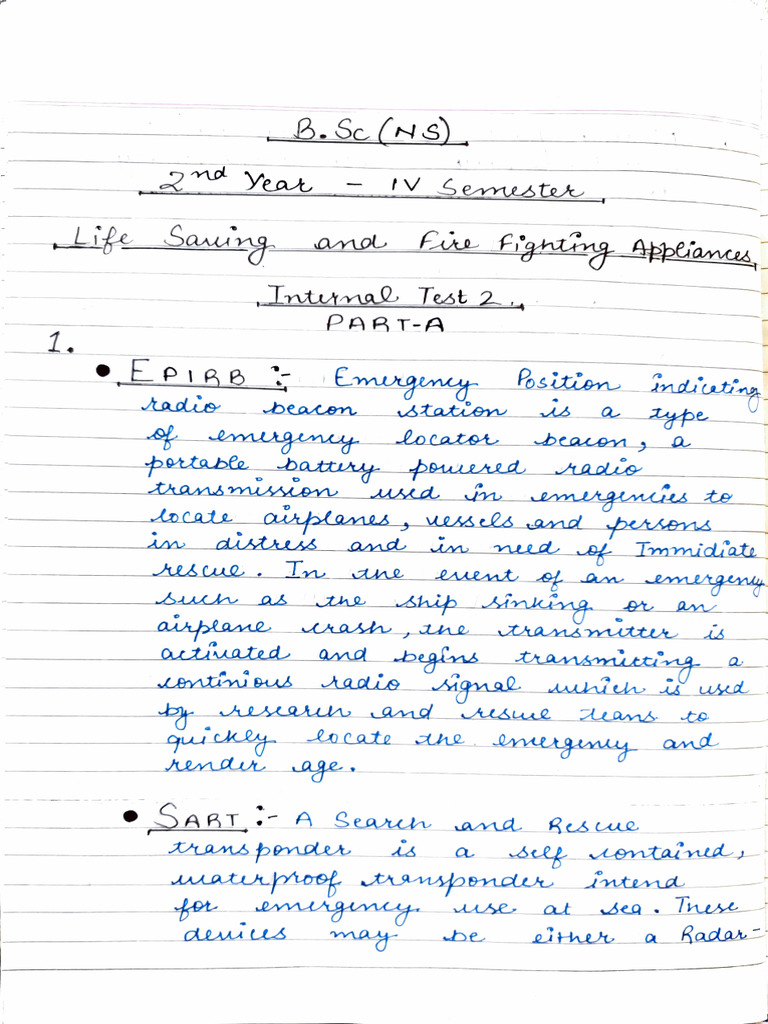 B.Sc (NS)
2nd Year - IV Semester
Life Saving and Fire Fighting Appliances
Internal Test 2.
PART-A
1.
• EPIRB :- Emergency Position indicating
radio beacon station is a type
of emergency locator beacon, a
portable battery powered radio
transmission used in emergencies to
locate airplanes, vessels and persons
in distress and in need of Immidiate
rescue. In the event of an emergency
such as the ship sinking or an
airplane crash, the transmitter is
activated and begins transmitting a
continious radio signal which is used
by research and rescue teans to
quickly locate the emergency and
render age.
• SART :- A Search and Rescue
transponder is a self contained,
waterproof transponder intend
for emergency use at sea. These
devices may be either a Radar-